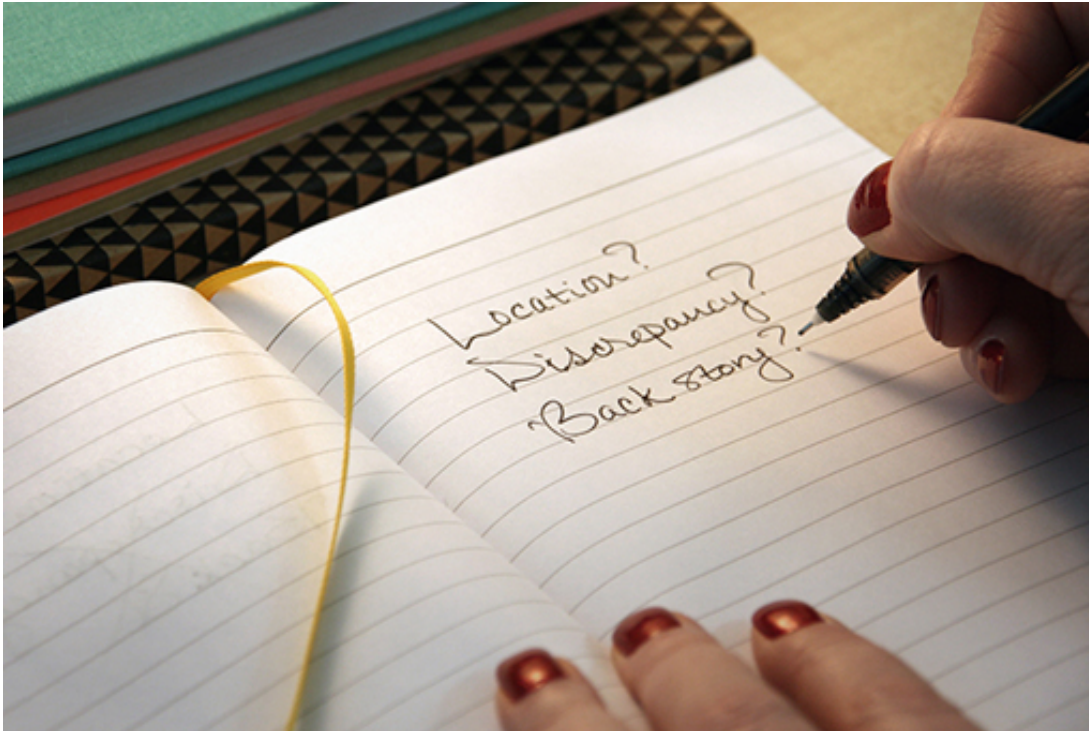 Location?
Discrepancy?
Back story?